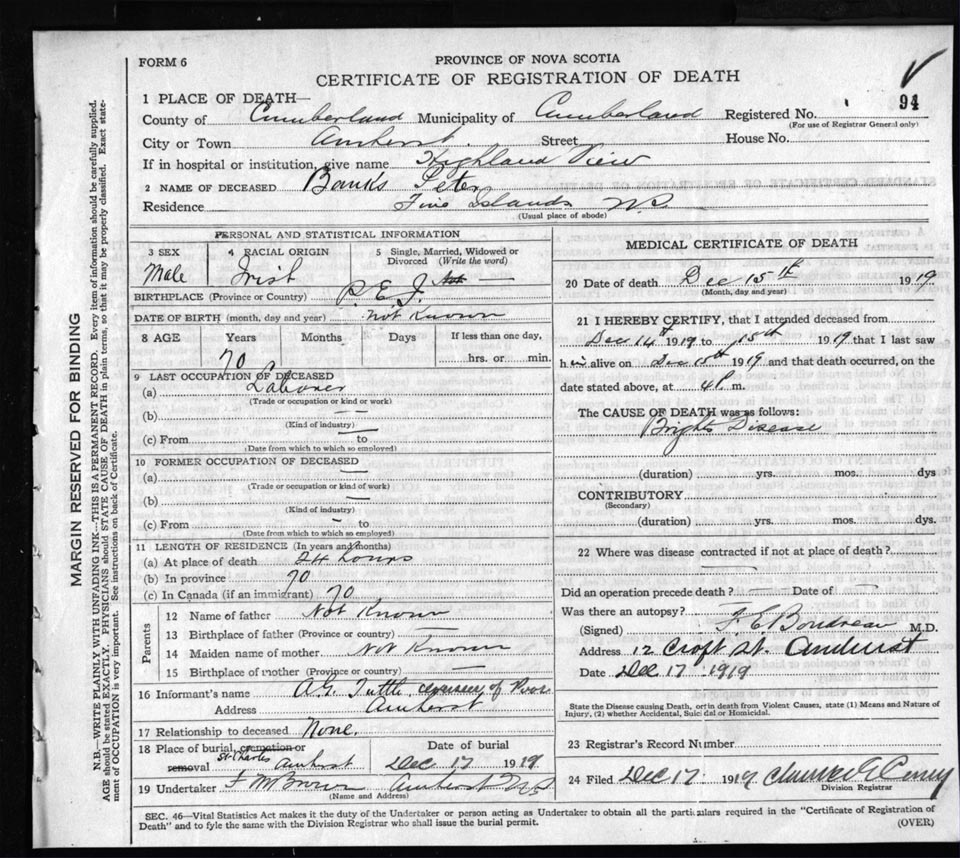 FORM 6
PROVINCE OF NOVA SCOTIA
CERTIFICATE OF REGISTRATION OF DEATH
94
1 PLACE OF DEATH—
County of Cumberland Municipality of Cumberland Registered No.
(For use of Registrar General only)
City or Town Amherst Street House No.
If in hospital or institution, give name Highland View
2 NAME OF DECEASED Banks Peter
Residence Five Islands N.S.
(Usual place of abode)
PERSONAL AND STATISTICAL INFORMATION
3 SEX Male
4 RACIAL ORIGIN Irish
5 Single, Married, Widowed or Divorced (Write the word) —
BIRTHPLACE (Province or Country) P.E.I.
DATE OF BIRTH (month, day and year) not Known
8 AGE Years Months Days If less than one day,
70 hrs. or min.
9 LAST OCCUPATION OF DECEASED
(a) Laborer
(Trade or occupation or kind of work)
(b) — —
(Kind of industry)
(c) From — to
(Date from which to which so employed)
10 FORMER OCCUPATION OF DECEASED
(a) —
(Trade or occupation or kind of work)
(b) —
(Kind of industry)
(c) From — to
(Date from which to which so employed)
11 LENGTH OF RESIDENCE (In years and months)
(a) At place of death 24 hours
(b) In province 70
(c) In Canada (if an immigrant) 70
Parents
12 Name of father Not Known
13 Birthplace of father (Province or country) —
14 Maiden name of mother Not Known
15 Birthplace of mother (Province or country) —
16 Informant's name A.G. Tuttle of Poor
Address Amherst
17 Relationship to deceased None.
18 Place of burial, cremation or removal St. Charles Amherst
Date of burial Dec 17 1919
19 Undertaker F M Brown Amherst N.S.
(Name and Address)
MEDICAL CERTIFICATE OF DEATH
20 Date of death Dec 15th 1919
(Month, day and year)
21 I HEREBY CERTIFY, that I attended deceased from
Dec 14th 1919 to 15th 1919 that I last saw
him alive on Dec 15th 1919 and that death occurred, on the
date stated above, at 4 P. m.
The CAUSE OF DEATH was as follows:
Brights Disease
(duration) yrs. mos. dys
CONTRIBUTORY
(Secondary)
(duration) yrs. mos. dys.
22 Where was disease contracted if not at place of death?
—
Did an operation precede death? — Date of —
Was there an autopsy?
(Signed) F. E. Boudreau M.D.
Address 12 Croft St. Amherst
Date Dec 17 1919
State the Disease causing Death, or in death from Violent Causes, state (1) Means and Nature of
Injury, (2) whether Accidental, Suicidal or Homicidal.
23 Registrar's Record Number
24 Filed Dec 17 1919
Division Registrar
SEC. 46—Vital Statistics Act makes it the duty of the Undertaker or person acting as Undertaker to obtain all the particulars required in the "Certificate of Registration of
Death" and to fyle the same with the Division Registrar who shall issue the burial permit.
(OVER)
MARGIN RESERVED FOR BINDING
N.B.—WRITE PLAINLY WITH UNFADING INK—THIS IS A PERMANENT RECORD. Every item of information should be carefully supplied.
AGE should be stated EXACTLY. PHYSICIANS should STATE CAUSE OF DEATH in plain terms, so that it may be properly classified. Exact state-
ment of OCCUPATION is very important. See instructions on back of Certificate.